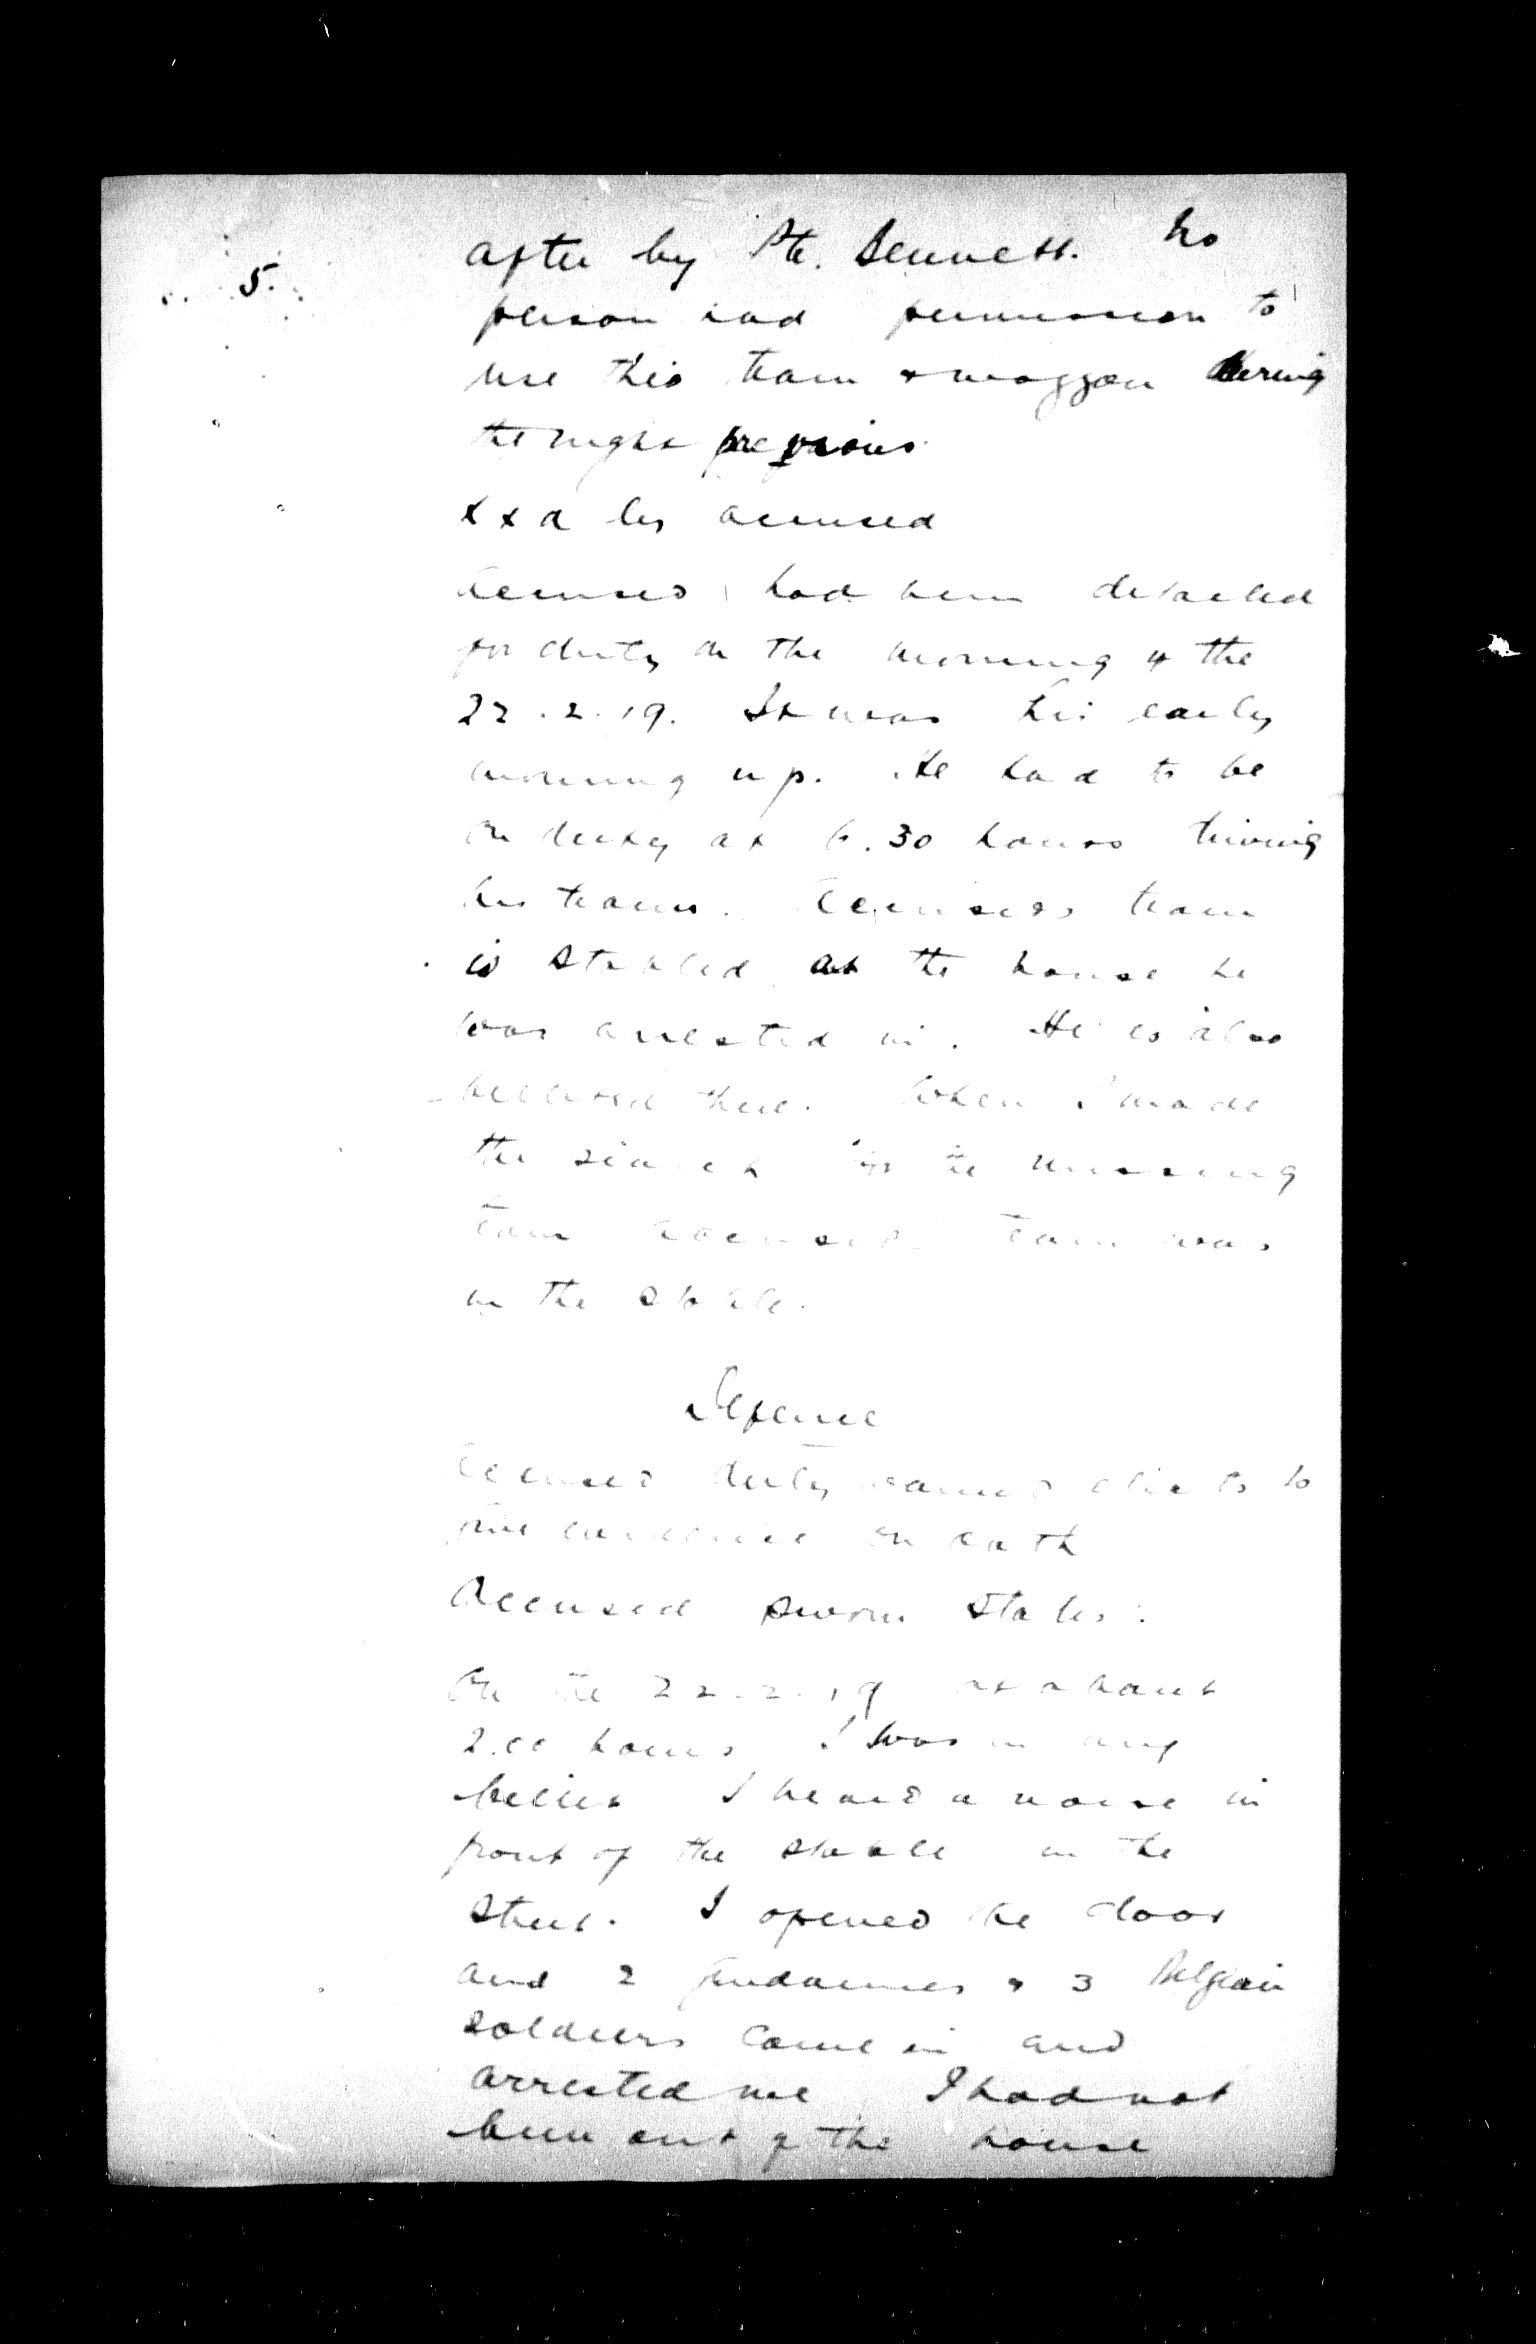 5.
after by Pte. Bennett. No
person had permission to
use this team & waggon during
the night previous.
xxd by accused
Accused had been detailed
for duty on the morning of the
22.2.19. It was his early
morning up. He had to be
on duty at 6.30 hours driving
his team. Accuseds team
is stabled at the house he
was arrested in. He is also
billeted there. When I made
the search for the missing
team accuseds team was
in the stable.
Defence
Accused duly warned elects to
give evidence on oath
Accused sworn states:
On the 22.2.19 at about
2.00 hours I was in my
billet I heard a noise in
front of the stable in the
street. I opened the door
and 2 gendarmes & 3 Belgian
soldiers came in and
arrested me I had not
been out of the house